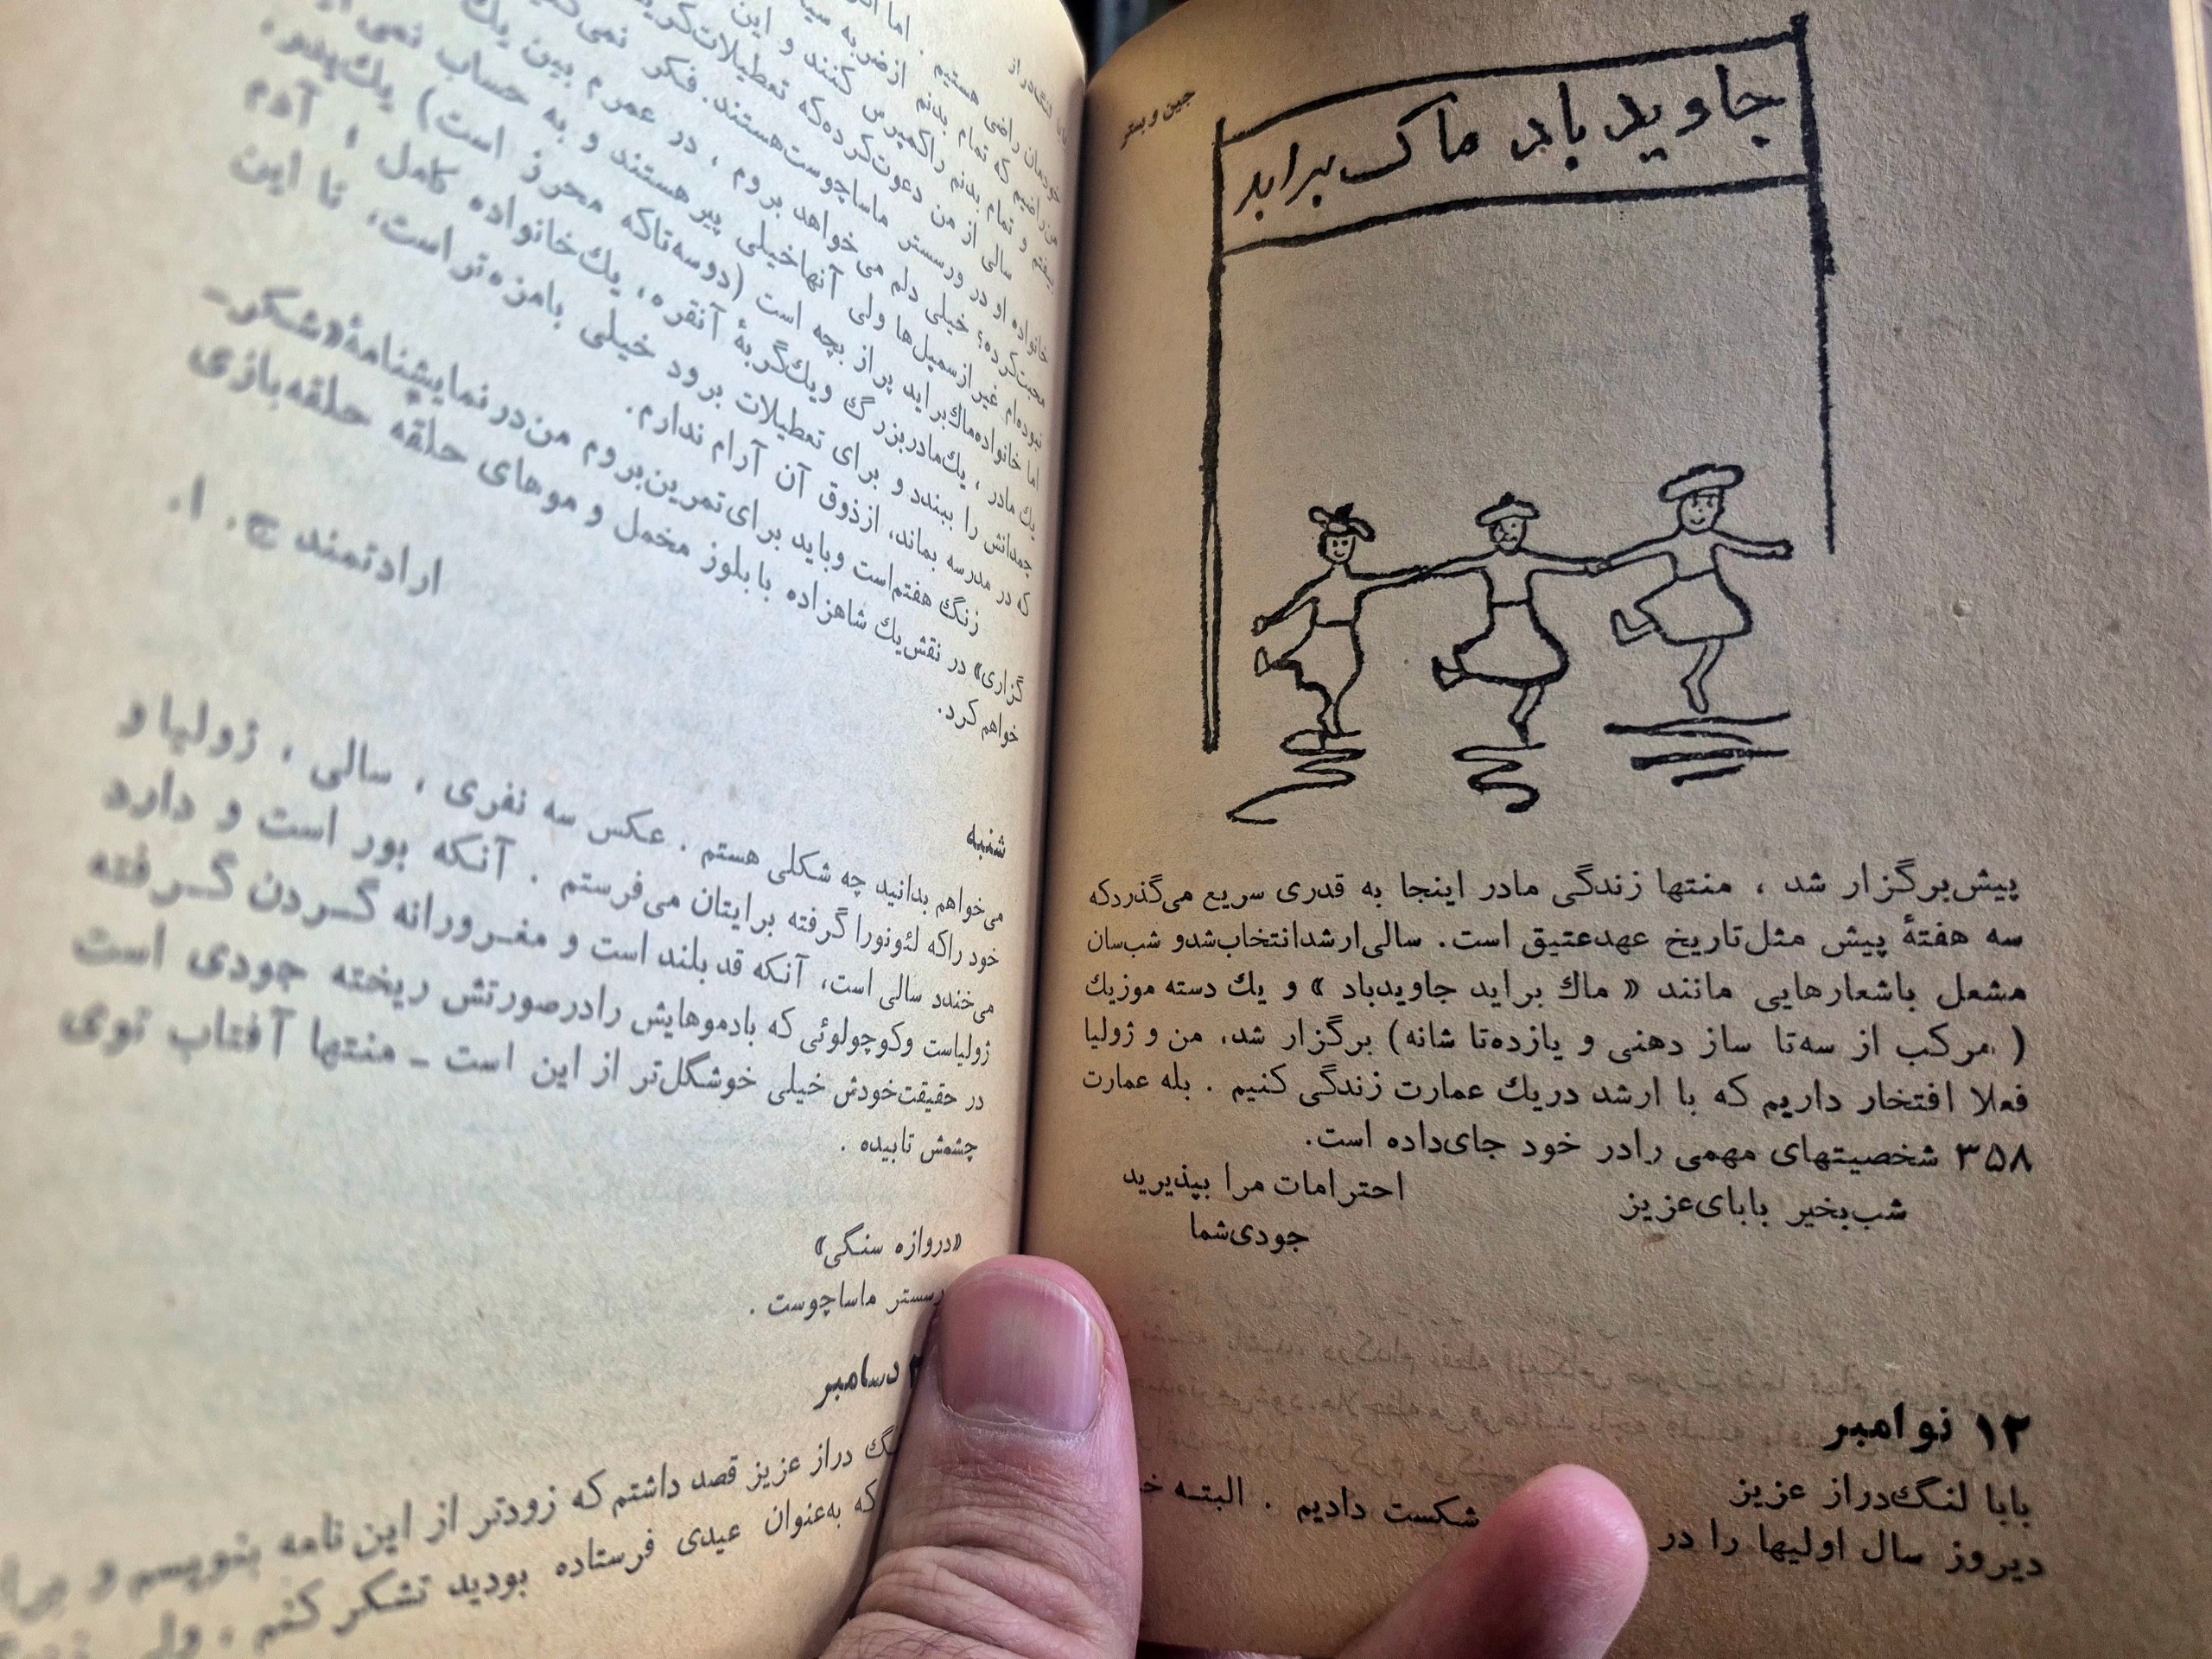 جین وبستر
جاوید باد ماک براید
پیش برگزار شد ، منتها زندگی مادر اینجا به قدری سریع می‌گذردکه
سه هفتهٔ پیش مثل تاریخ عهدعتیق است. سالی ارشدانتخاب‌شدو شب‌سان
مشعل باشعارهایی مانند « ماك براید جاویدباد » و یك دسته موزیك
( مرکب از سه‌تا ساز دهنی و یازده‌تا شانه) برگزار شد. من و ژولیا
فعلا افتخار داریم که با ارشد دریك عمارت زندگی کنیم . بله عمارت
۳۵۸ شخصیتهای مهمی رادر خود جای‌داده است.
شب‌بخیر بابای‌عزیز
احترامات مرا بپذیرید
جودی‌شما
۱۲ نوامبر
بابا لنگ‌دراز عزیز
دیروز سال اولیها را در
شکست دادیم . البته
خودمان راضی هستیم . اما
من راضیم که تمام بدنم ازضربه
بیفتم و تمام بدنم راکمپرس کنند و این
سالی از من دعوت‌کرده‌که تعطیلات
خانواده او در ورسستر ماساچوست‌هستند. فکر نمی
محبت‌کرده؟ خیلی دلم می‌خواهد بروم ، در عمرم بین یك
نبوده‌ام غیرازسمپل‌ها ولی آنهاخیلی پیرهستند و به حساب نمی
اما خانواده‌ماك‌براید پراز بچه است (دوسه‌تاکه محرز است) یك‌پدر،
یك مادر ، یك‌مادربزرگ ویك‌گربهٔ آنقره، یك‌خانواده کامل ، آدم
چمدانش را ببندد و برای تعطیلات برود خیلی بامزه‌تراست، تا این
که در مدرسه بماند، ازذوق آن آرام ندارم.
زنگ هفتم‌است وباید برای‌تمرین‌بروم من‌درنمایشنامهٔ«شکر-
گزاری» در نقش‌یك شاهزاده بابلوز مخمل و موهای حلقه حلقه‌بازی
خواهم‌کرد.
ارادتمند ج. ا.
شنبه
می‌خواهم بدانید چه شکلی هستم . عکس سه نفری ، سالی ، ژولیا و
خود راکه لئونورا گرفته برایتان می‌فرستم . آنکه بور است و دارد
می‌خندد سالی است، آنکه قدبلند است و مغرورانه گردن گرفته
ژولیاست وکوچولوئی که بادموهایش رادرصورتش ریخته جودی است
در حقیقت‌خودش خیلی خوشگل‌تر از این است ـ منتها آفتاب توی
چشمش تابیده .
«دروازه سنگی»
ماساچوست .
دسامبر
دراز عزیز قصد داشتم که زودتر از این نامه بنویسم و
که به‌عنوان عیدی فرستاده بودید تشکر کنم ، ولی